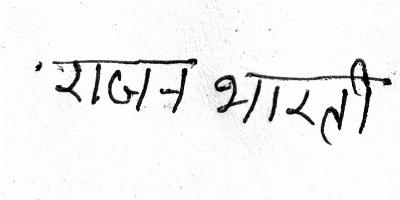 राजन भारती